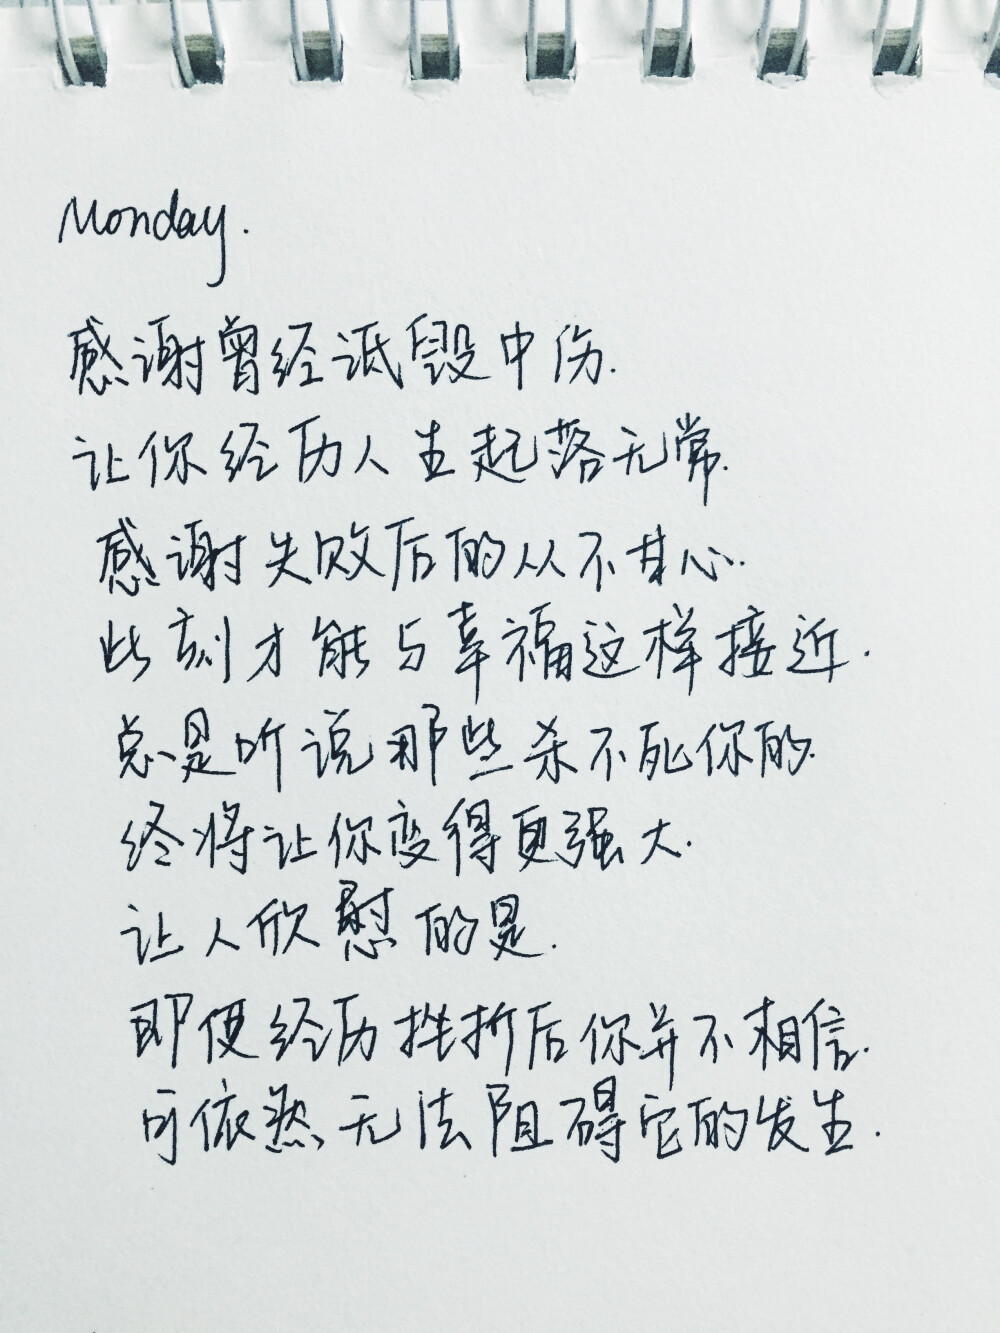 Monday.
感谢曾经诋毁中伤.
让你经历人生起落无常.
感谢失败后的从不甘心.
此刻才能与幸福这样接近.
总是听说那些杀不死你的.
终将让你变得更强大.
让人欣慰的是.
即便经历挫折后你并不相信.
可依然无法阻碍它的发生.